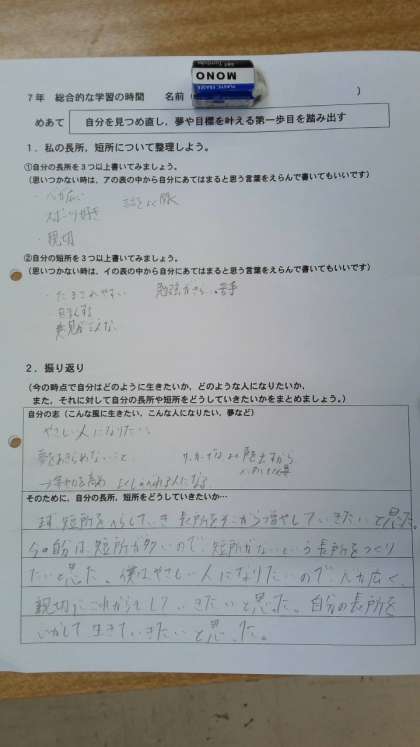 MONO
PLASTIC ERASER
7年 総合的な学習の時間 名前( )
めあて 自分を見つめ直し，夢や目標を叶える第一歩目を踏み出す
1．私の長所，短所について整理しよう。
①自分の長所を3つ以上書いてみましょう。
(思いつかない時は，アの表の中から自分にあてはまると思う言葉をえらんで書いてもいいです)
・人力広い
スポーツ好き
・親切
②自分の短所を3つ以上書いてみましょう。
(思いつかない時は，イの表の中から自分にあてはまると思う言葉をえらんで書いてもいいです)
・だまされやすい 勉強が 苦手
2．振り返り
(今の時点で自分はどのように生きたいか，どのような人になりたいか，
また，それに対して自分の長所や短所をどうしていきたいかをまとめましょう。)
自分の志（こんな風に生きたい，こんな人になりたい，夢など）
やさしい人になりたい。
夢をあきらめないこと
そのために，自分の長所，短所をどうしていきたいか…
まず短所をへらしていき長所をそこから増やしていきたいと思った。
今の自分は、短所が多いので、短所がないという長所をつくり
たいと思った。僕はやさしい人になりたいので、人力広く、
親切にこれからもしていきたいと思った。自分の長所を
いかして生きていきたいと思った。